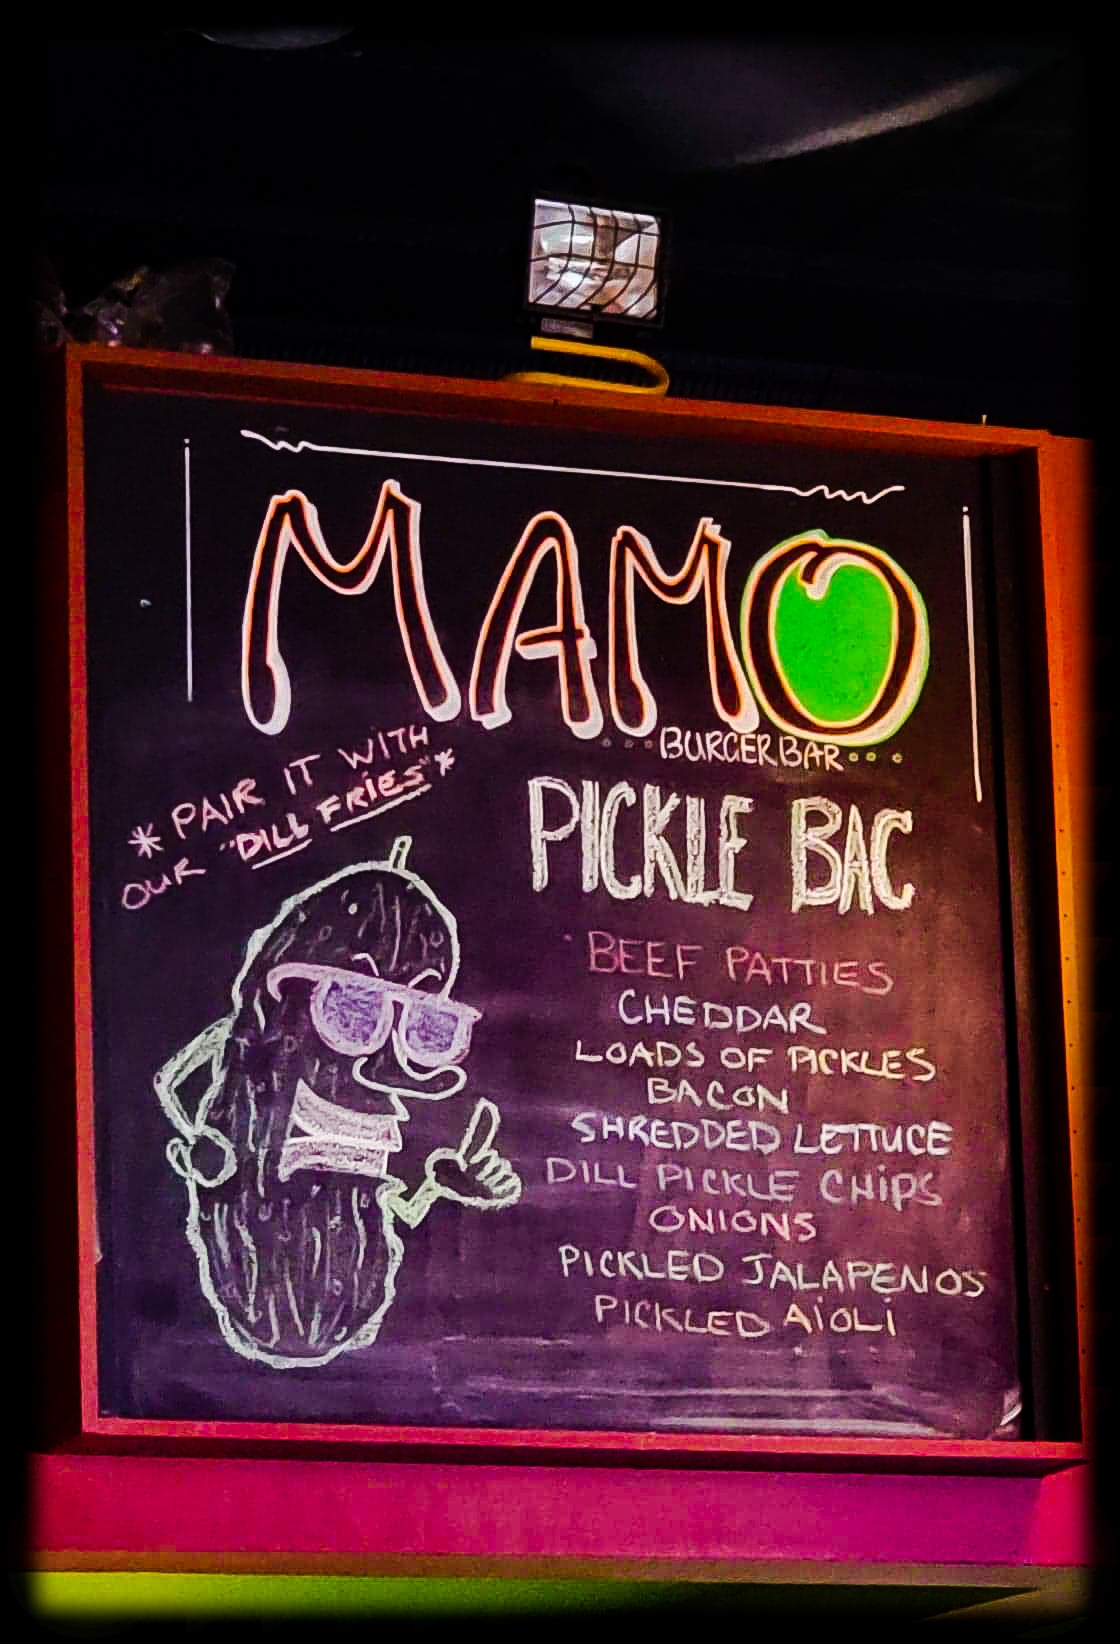 MAMO
...BURGER BAR...
* PAIR IT WITH
OUR "DILL FRIES" *
PICKLE BAC
BEEF PATTIES
CHEDDAR
LOADS OF PICKLES
BACON
SHREDDED LETTUCE
DILL PICKLE CHiPS
ONIONS
PICKLED JALAPENOS
PICKLED AiOLi